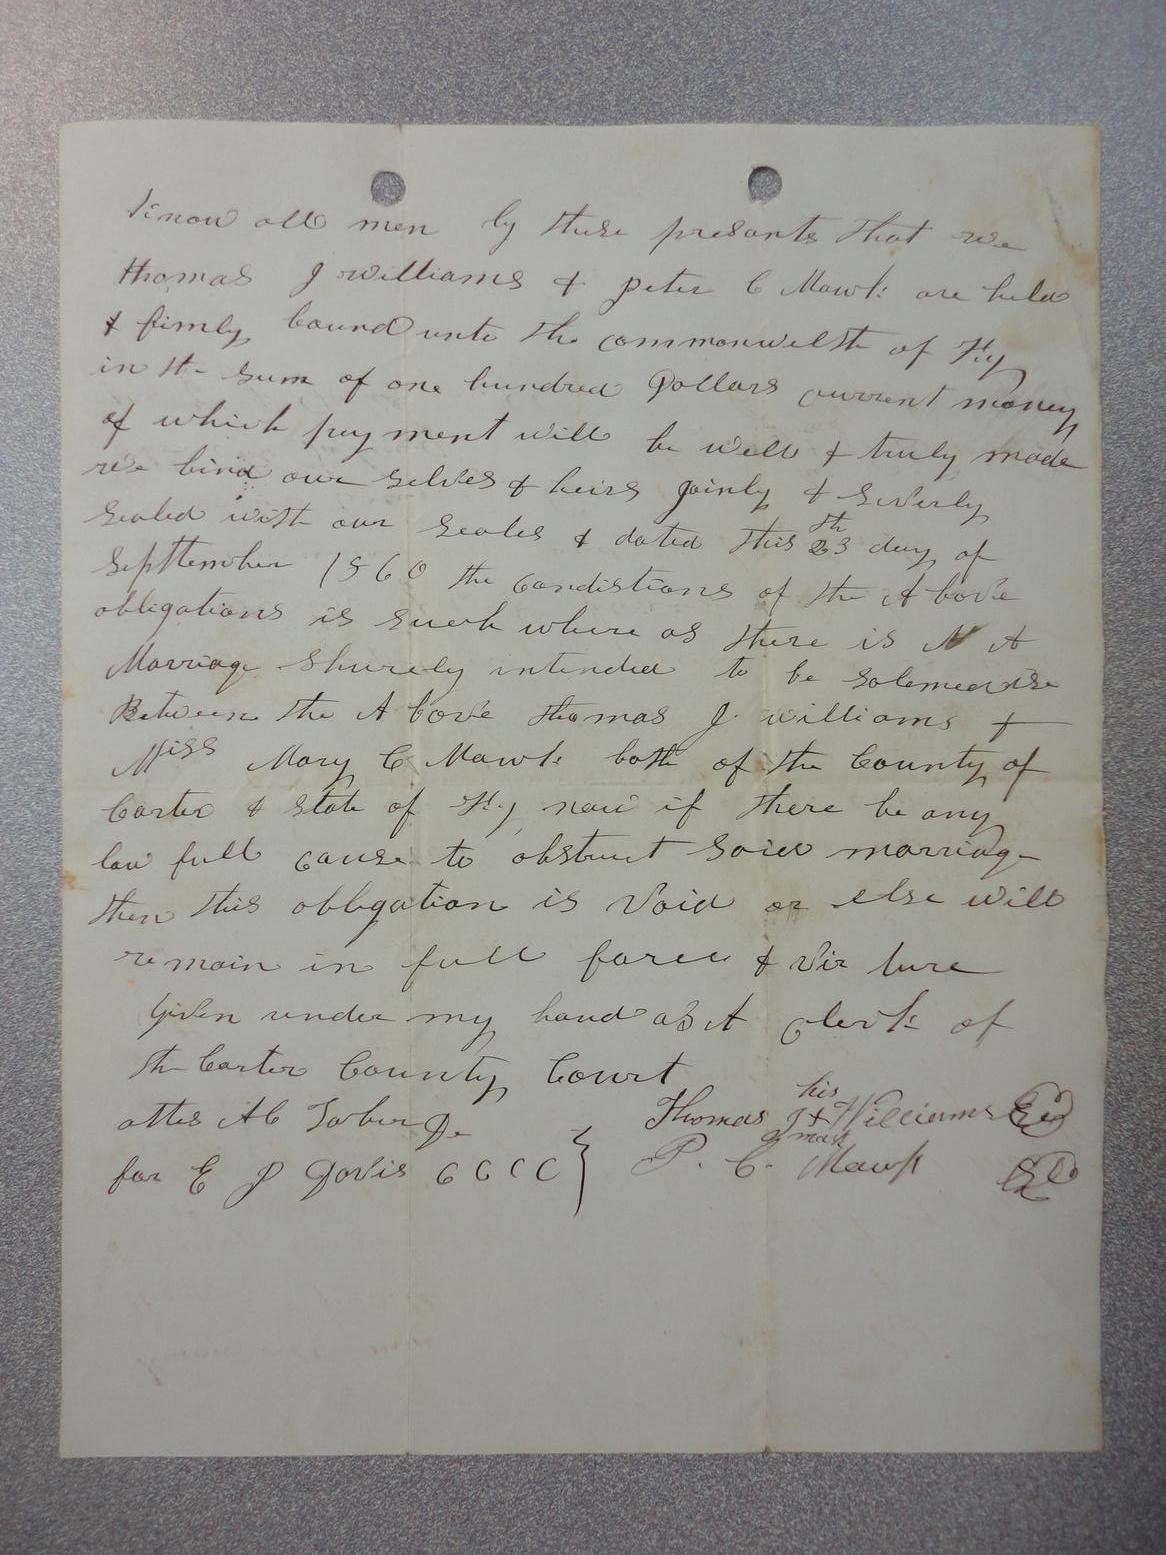 Know all men by these presants that we
thomas J williams & peter C Mawk are held
& firmly bound unto the commonwelth of Ky
in th sum of one hundred Dollars current money
of which payment will be well & truly made
we bind our selves & heirs joinly & severly
sealed with our seales & dated this 23th day of
Septtember 1860 the condistions of the Above
obligations is such where as there is A
Marriage shurely intended to be solemenise
Between the Above thomas J. williams &
Miss Mary C Mawk both of the County of
Carter & state of Ky now if there be any
law full cause to obstruct said marriage
then this obligation is void or else will
remain in full force & vir ture
Given under my hand as A clerk of
th Carter County Court
his
attes AC Thomas J + Williams
mark
for E J Davis C C C C } P. C. Mawk